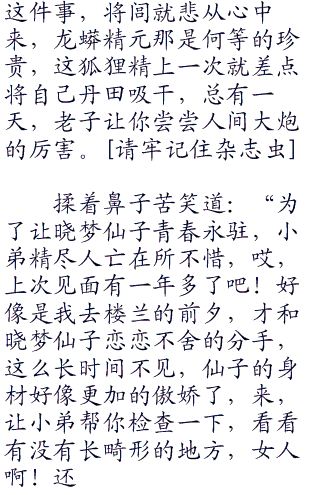 这件事，将闾就悲从心中
来，龙蟒精元那是何等的珍
贵，这狐狸精上一次就差点
将自己丹田吸干，总有一
天，老子让你尝尝人间大炮
的厉害。[请牢记住杂志虫]
揉着鼻子苦笑道：“为
了让晓梦仙子青春永驻，小
弟精尽人亡在所不惜，哎，
上次见面有一年多了吧！好
像是我去楼兰的前夕，才和
晓梦仙子恋恋不舍的分手，
这么长时间不见，仙子的身
材好像更加的傲娇了，来，
让小弟帮你检查一下，看看
有没有长畸形的地方，女人
啊！还